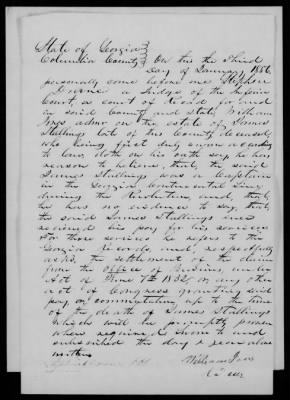 State of Georgia
Columbia County On this the third
day of January, 1856
personally came before me Stephen
a Judge of the Inferior
Court, a court of Record for and
in said County and State William
Jones admr on the estate of James
Stallings late of this County deceased
who being first duly sworn according
to law, doth on his oath say he has
reason to believe, that the said
James Stallings was a Captain
in the Georgia Continental Line
during the Revolution, and that
he has no evidence to say that
the said James Stallings ever
received his pay for his services
For these services he refers to the
Georgia Records, and respectfully
asks the settlement of the claim
from the Office of Pensions, under
Act of June 7th 1832 or any other
act of Congress granting said
pay or commutation up to the time
of the death of James Stallings
Which will be promptly proven
when required, Sworn to and
subscribed the day & year above
written
William Jones